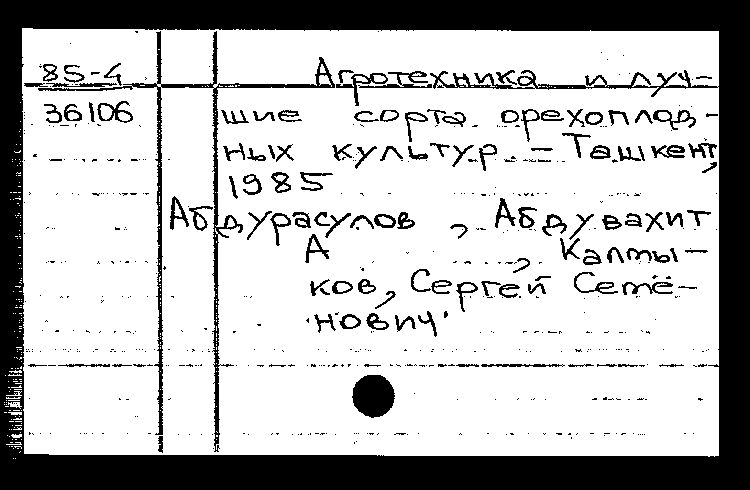 85-4 Агротехника и луч-
36106 шие сорта орехоплод-
ных культур. – Ташкент,
1985
Абдурасулов, Абдувахит
А , Калмы-
ков, Сергей Семё-
нович.